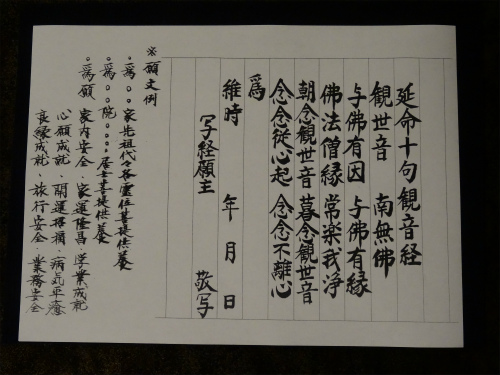 延命十句観音経
観世音 南無佛
与佛有因 与佛有縁
佛法僧縁 常楽我浄
朝念観世音 暮念観世音
念念従心起 念念不離心
爲
維時 年 月 日
写経願主 敬写
※願文例
・爲○○家先祖代々各霊位菩提供養
・爲○○院○○○○居士菩提供養
・爲願 家内安全、家運隆昌 学業成就
心願成就、開運招福、病気平癒
良縁成就、旅行安全、業務安全